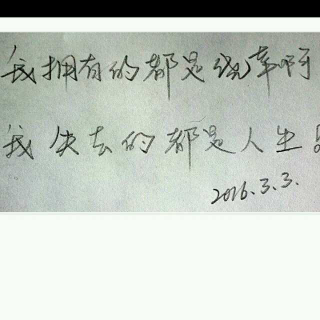 我拥有的都是侥幸啊
我失去的都是人生
2016.3.3.